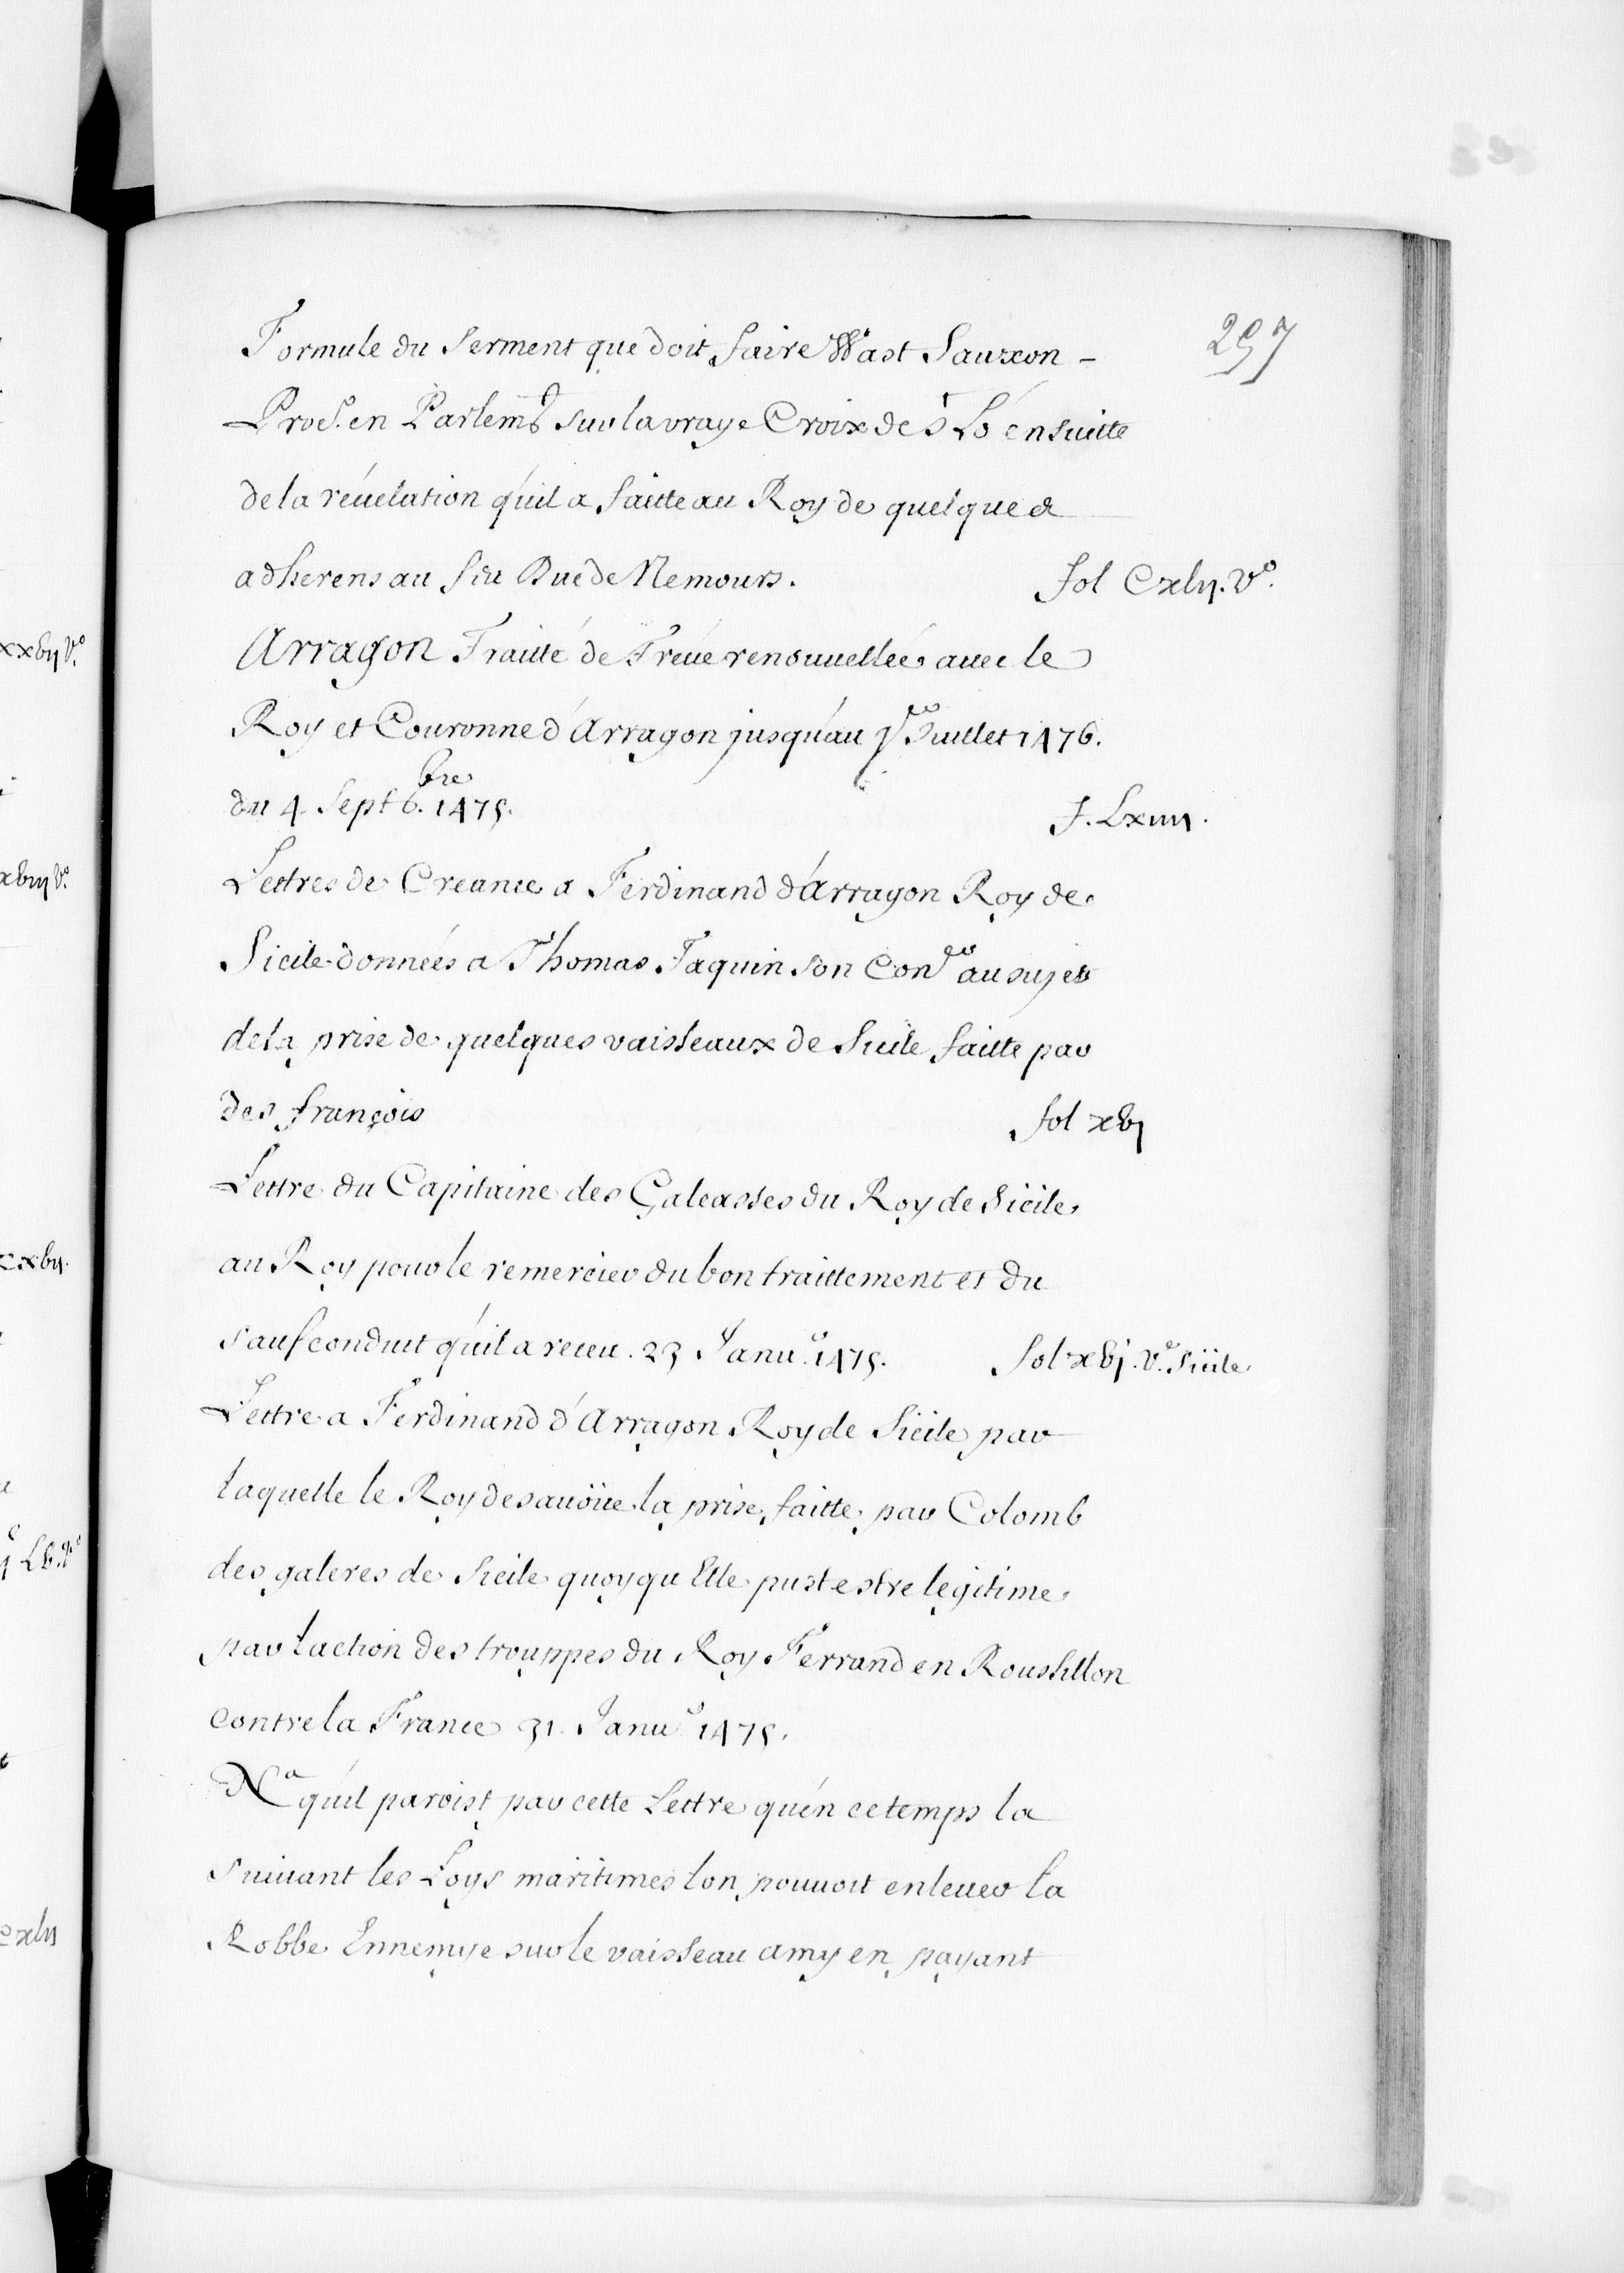 297
Formule du Serment que doit faire Wast Sauxon -
Proc.r en Parlem.t sur la vraye Croix de S.t Lo ensuitte
de la réuelation qu'il a faitte au Roy de quelques
adherens au feu Duc de Nemours. fol Cxlij. v.o
Arragon Traitté de Tréue renouuellée auec le
Roy et Couronne d'Arragon jusqu'au p.er Juillet 1476.
du 4. Septb.bre 1475. f. Lxiiij.
Lettres de Creance a Ferdinand d'Arragon Roy de
Sicile données a Thomas Taquin son Con.er au sujet
de la prise de quelques vaisseaux de Sicile faitte par
des françois fol xvj
Lettre du Capitaine des Galeasses du Roy de Sicile
au Roy pour le remercier du bon traittement et du
saufconduit qu'il a receu. 23 Janu.r 1475. fol xvj. v.o Sicile
Lettre a Ferdinand d'Arragon Roy de Sicile par
laquelle le Roy desauoüe la prise faitte par Colomb
des galeres de Sicile quoyqu'Elle pust estre legitime
par l'action des trouppes du Roy Ferrand en Roussillon
contre la France 31. Janu.r 1475.
N.a qu'il paroist par cette Lettre qu'en ce temps la
suiuant les Loys maritimes lon pouuoit enleuer la
Robbe Ennemye sur le vaisseau amy en payant
xxvij v.o
xviij v.o
xxvij.
Lv. v.o
cxlij